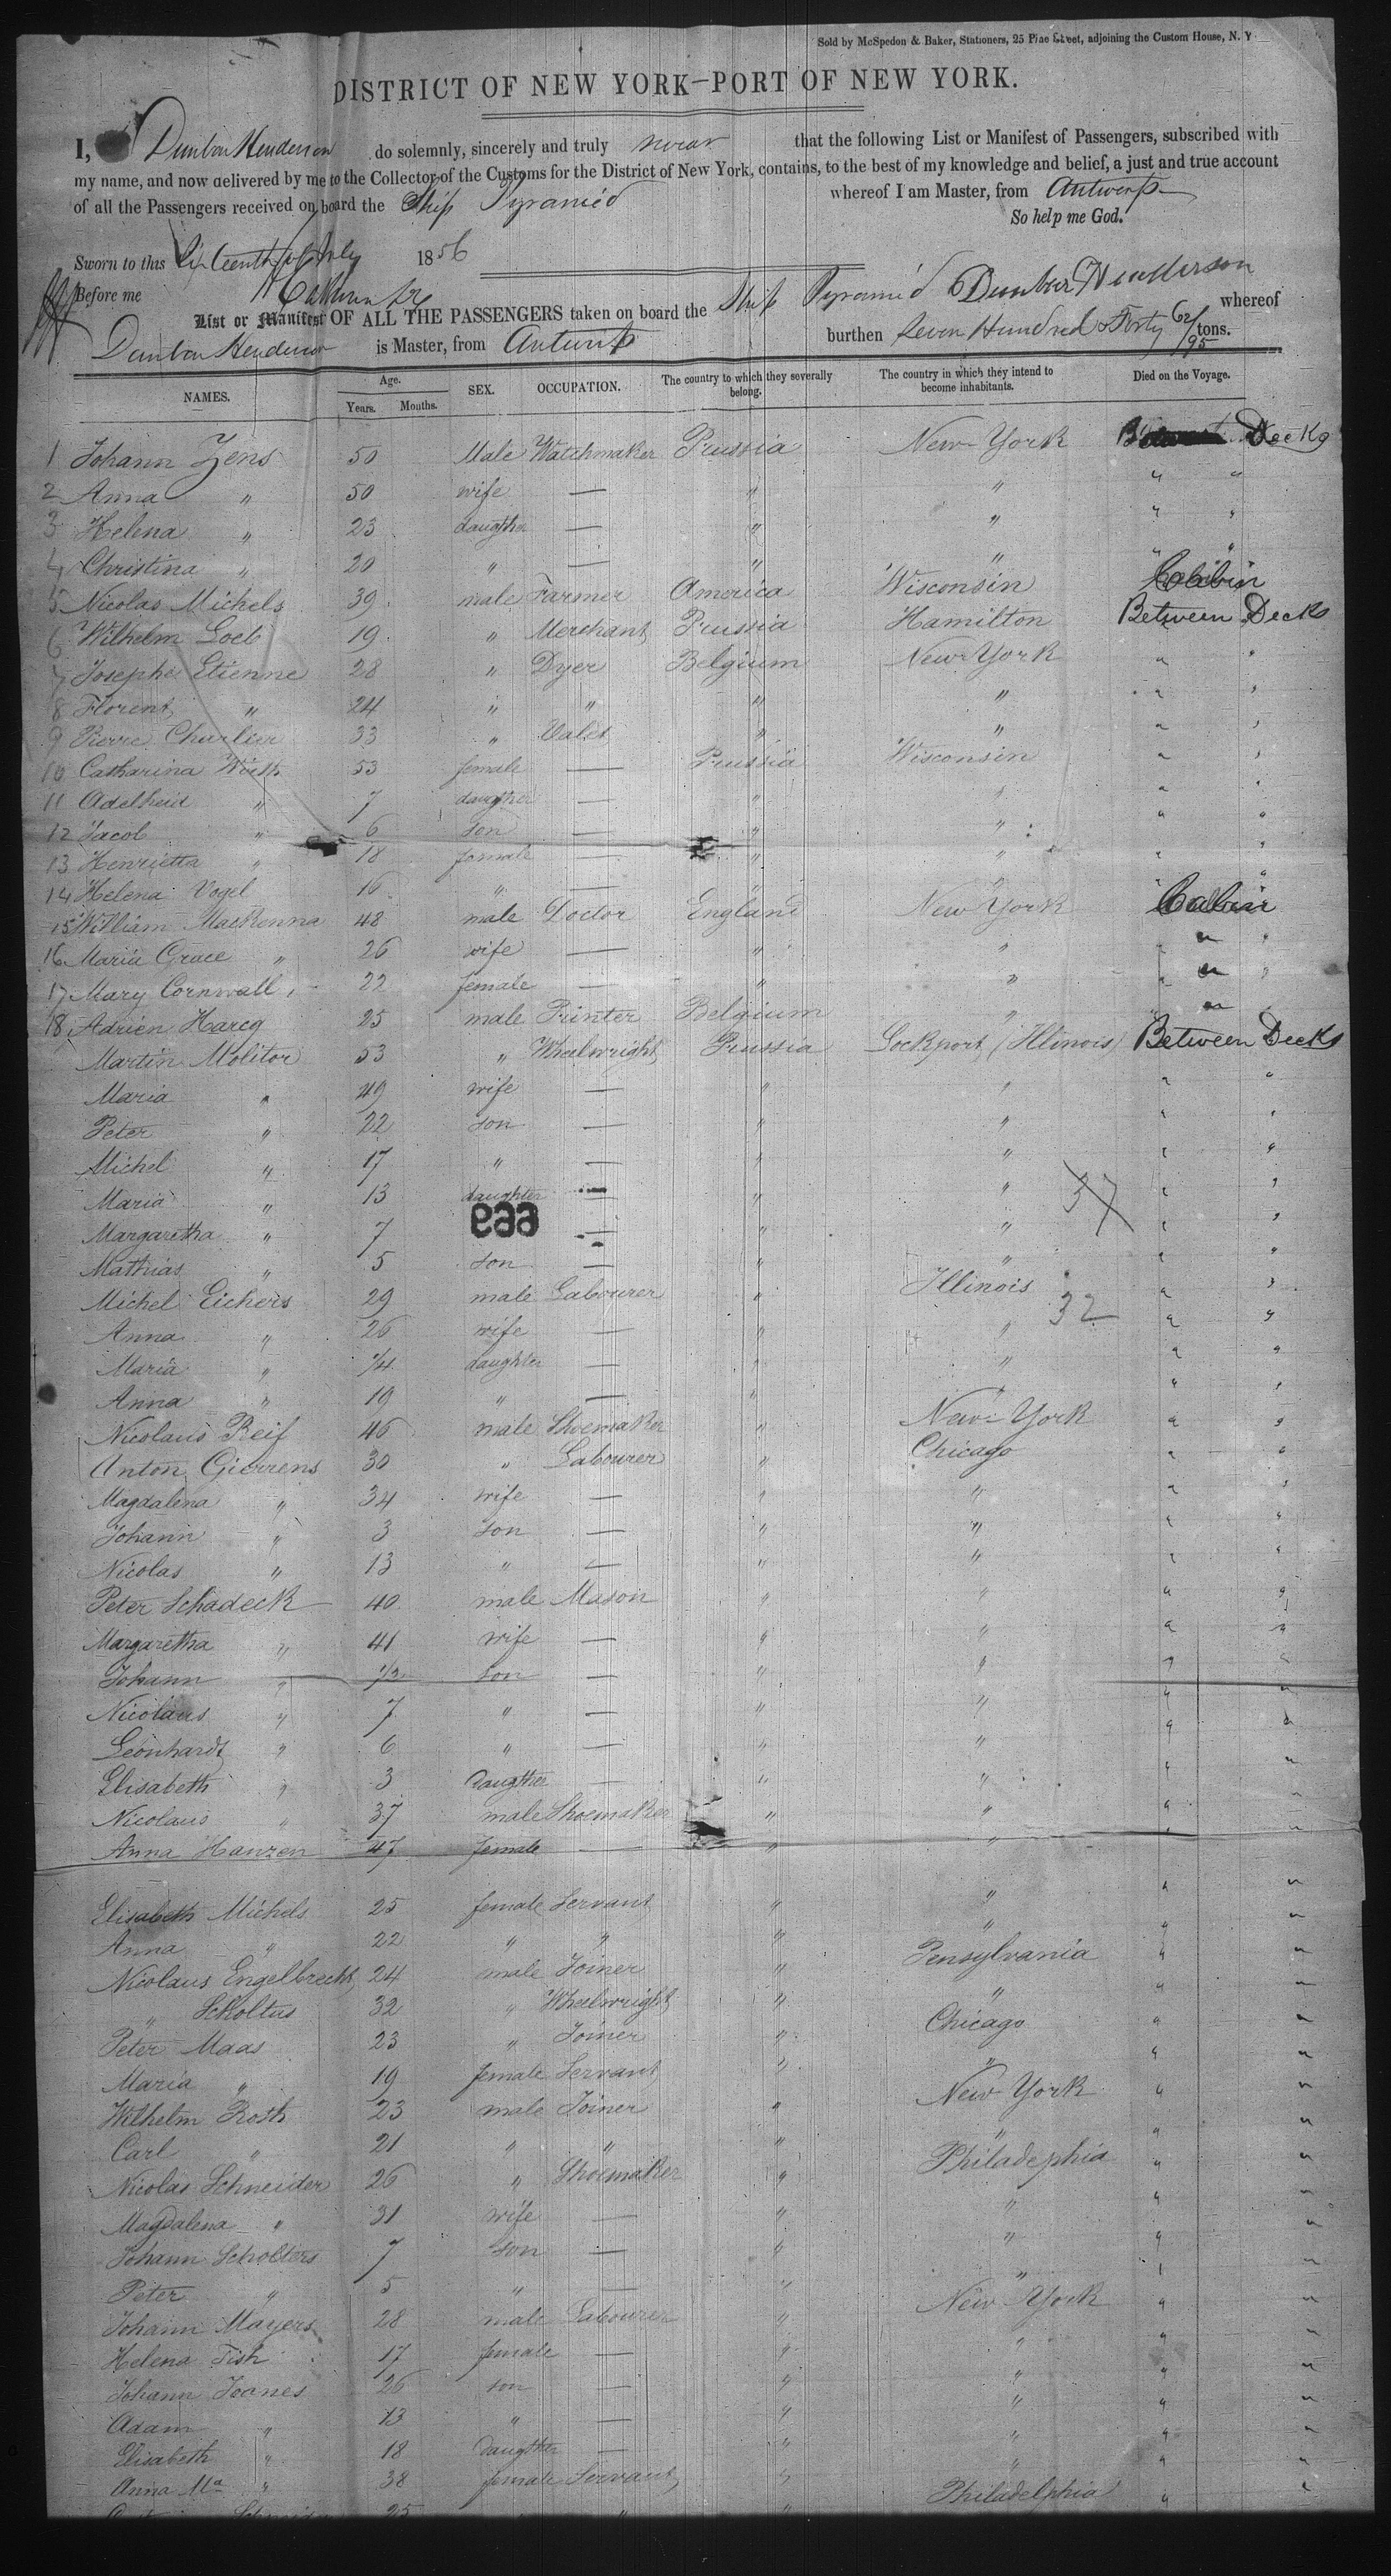 Sold by McSpedon & Baker, Stationers, 25 Pine Street, adjoining the Custom House, N. Y.
DISTRICT OF NEW YORK—PORT OF NEW YORK.
I, Dunbar Henderson do solemnly, sincerely and truly swear that the following List or Manifest of Passengers, subscribed with
my name, and now delivered by me to the Collector of the Customs for the District of New York, contains, to the best of my knowledge and belief, a just and true account
of all the Passengers received on board the Ship Pyramid whereof I am Master, from Antwerp
So help me God.
Sworn to this Sixteenth July 1856
Before me Dunbar Henderson
List or Manifest OF ALL THE PASSENGERS taken on board the Ship Pyramid whereof
Dunbar Henderson is Master, from Antwerp burthen Seven Hundred & Forty 62/95 tons.
NAMES. Age. Years. Months. SEX. OCCUPATION. The country to which they severally belong. The country in which they intend to become inhabitants. Died on the Voyage.
1 Johann Zens 50 Male Watchmaker Prussia New York Decks
2 Anna " 50 wife — " " " "
3 Helena " 23 daugther — " " " "
4 Christina " 20 " — " " " "
5 Nicolas Michels 39 male Farmer America Wisconsin Cabin
6 Wilhelm Loeb 19 " Merchant Prussia Hamilton Between Decks
7 Josephe Etienne 28 " Dyer Belgium New York " "
8 Florent " 24 " " " " " "
9 Pierre Charlier 33 " Valet " " " "
10 Catharina Wüsth 53 female — Prussia Wisconsin " "
11 Adelheid " 7 daugther — " " " "
12 Jacob " 6 son — " " " "
13 Henrietta " 18 female — " " " "
14 Helena Vogel 16 " — " " " "
15 William MacKenna 48 male Doctor England New York Cabin
16 Maria Grace " 26 wife — " " " "
17 Mary Cornwall 22 female — " " " "
18 Adrien Harcq 25 male Printer Belgium " " "
Martin Molitor 53 " Wheelwright Prussia Lockport (Illinois) Between Decks
Maria " 49 wife — " " " "
Peter " 22 son — " " " "
Michel " 17 " — " " " "
Maria " 13 daughter — " " 37 " "
Margaretha " 7 — " " " "
669
Mathias " 5 son — " " " "
Michel Eichers 29 male Labourer " Illinois " "
Anna " 26 wife — " " 32 " "
Maria " 1/4 daughter — " " " "
Anna " 19 " — " " " "
Nicolaus Reif 46 male Shoemaker " New York " "
Anton Gierrens 30 " Labourer " Chicago " "
Magdalena " 34 wife — " " " "
Johann " 3 son — " " " "
Nicolas " 13 " — " " " "
Peter Schadeck 40 male Mason " " " "
Margaretha " 41 wife — " " " "
Johann " 1/2 son — " " " "
Nicolaus " 7 " — " " " "
Leonhardt " 6 " — " " " "
Elisabeth " 3 Daugther — " " " "
Nicolaus " 37 male Shoemaker " " " "
Anna Hanzen 47 female — " " " "
Elisabeth Michels 25 female Servant " " " "
Anna " 22 " " " " " "
Nicolaus Engelbrecht 24 male Joiner " Pensylvania " "
" Scholtus 32 " Wheelwright " " " "
Peter Maas 23 " Joiner " Chicago " "
Maria " 19 female Servant " " " "
Wilhelm Roth 23 male Joiner " New York " "
Carl " 21 " " " " " "
Nicolas Schneider 26 " Shoemaker " Philadephia " "
Magdalena " 31 wife — " " " "
Johann Scholters 7 son — " " " "
Peter " 5 " — " " " "
Johann Mayers 28 male Labourer " New York " "
Helena Fish 17 female — " " " "
Johann Joanes 26 son — " " " "
Adam " 13 " — " " " "
Elisabeth " 18 Daugther — " " " "
Anna Ma " 38 female Servant " " " "
25 " " " Philadelphia " "